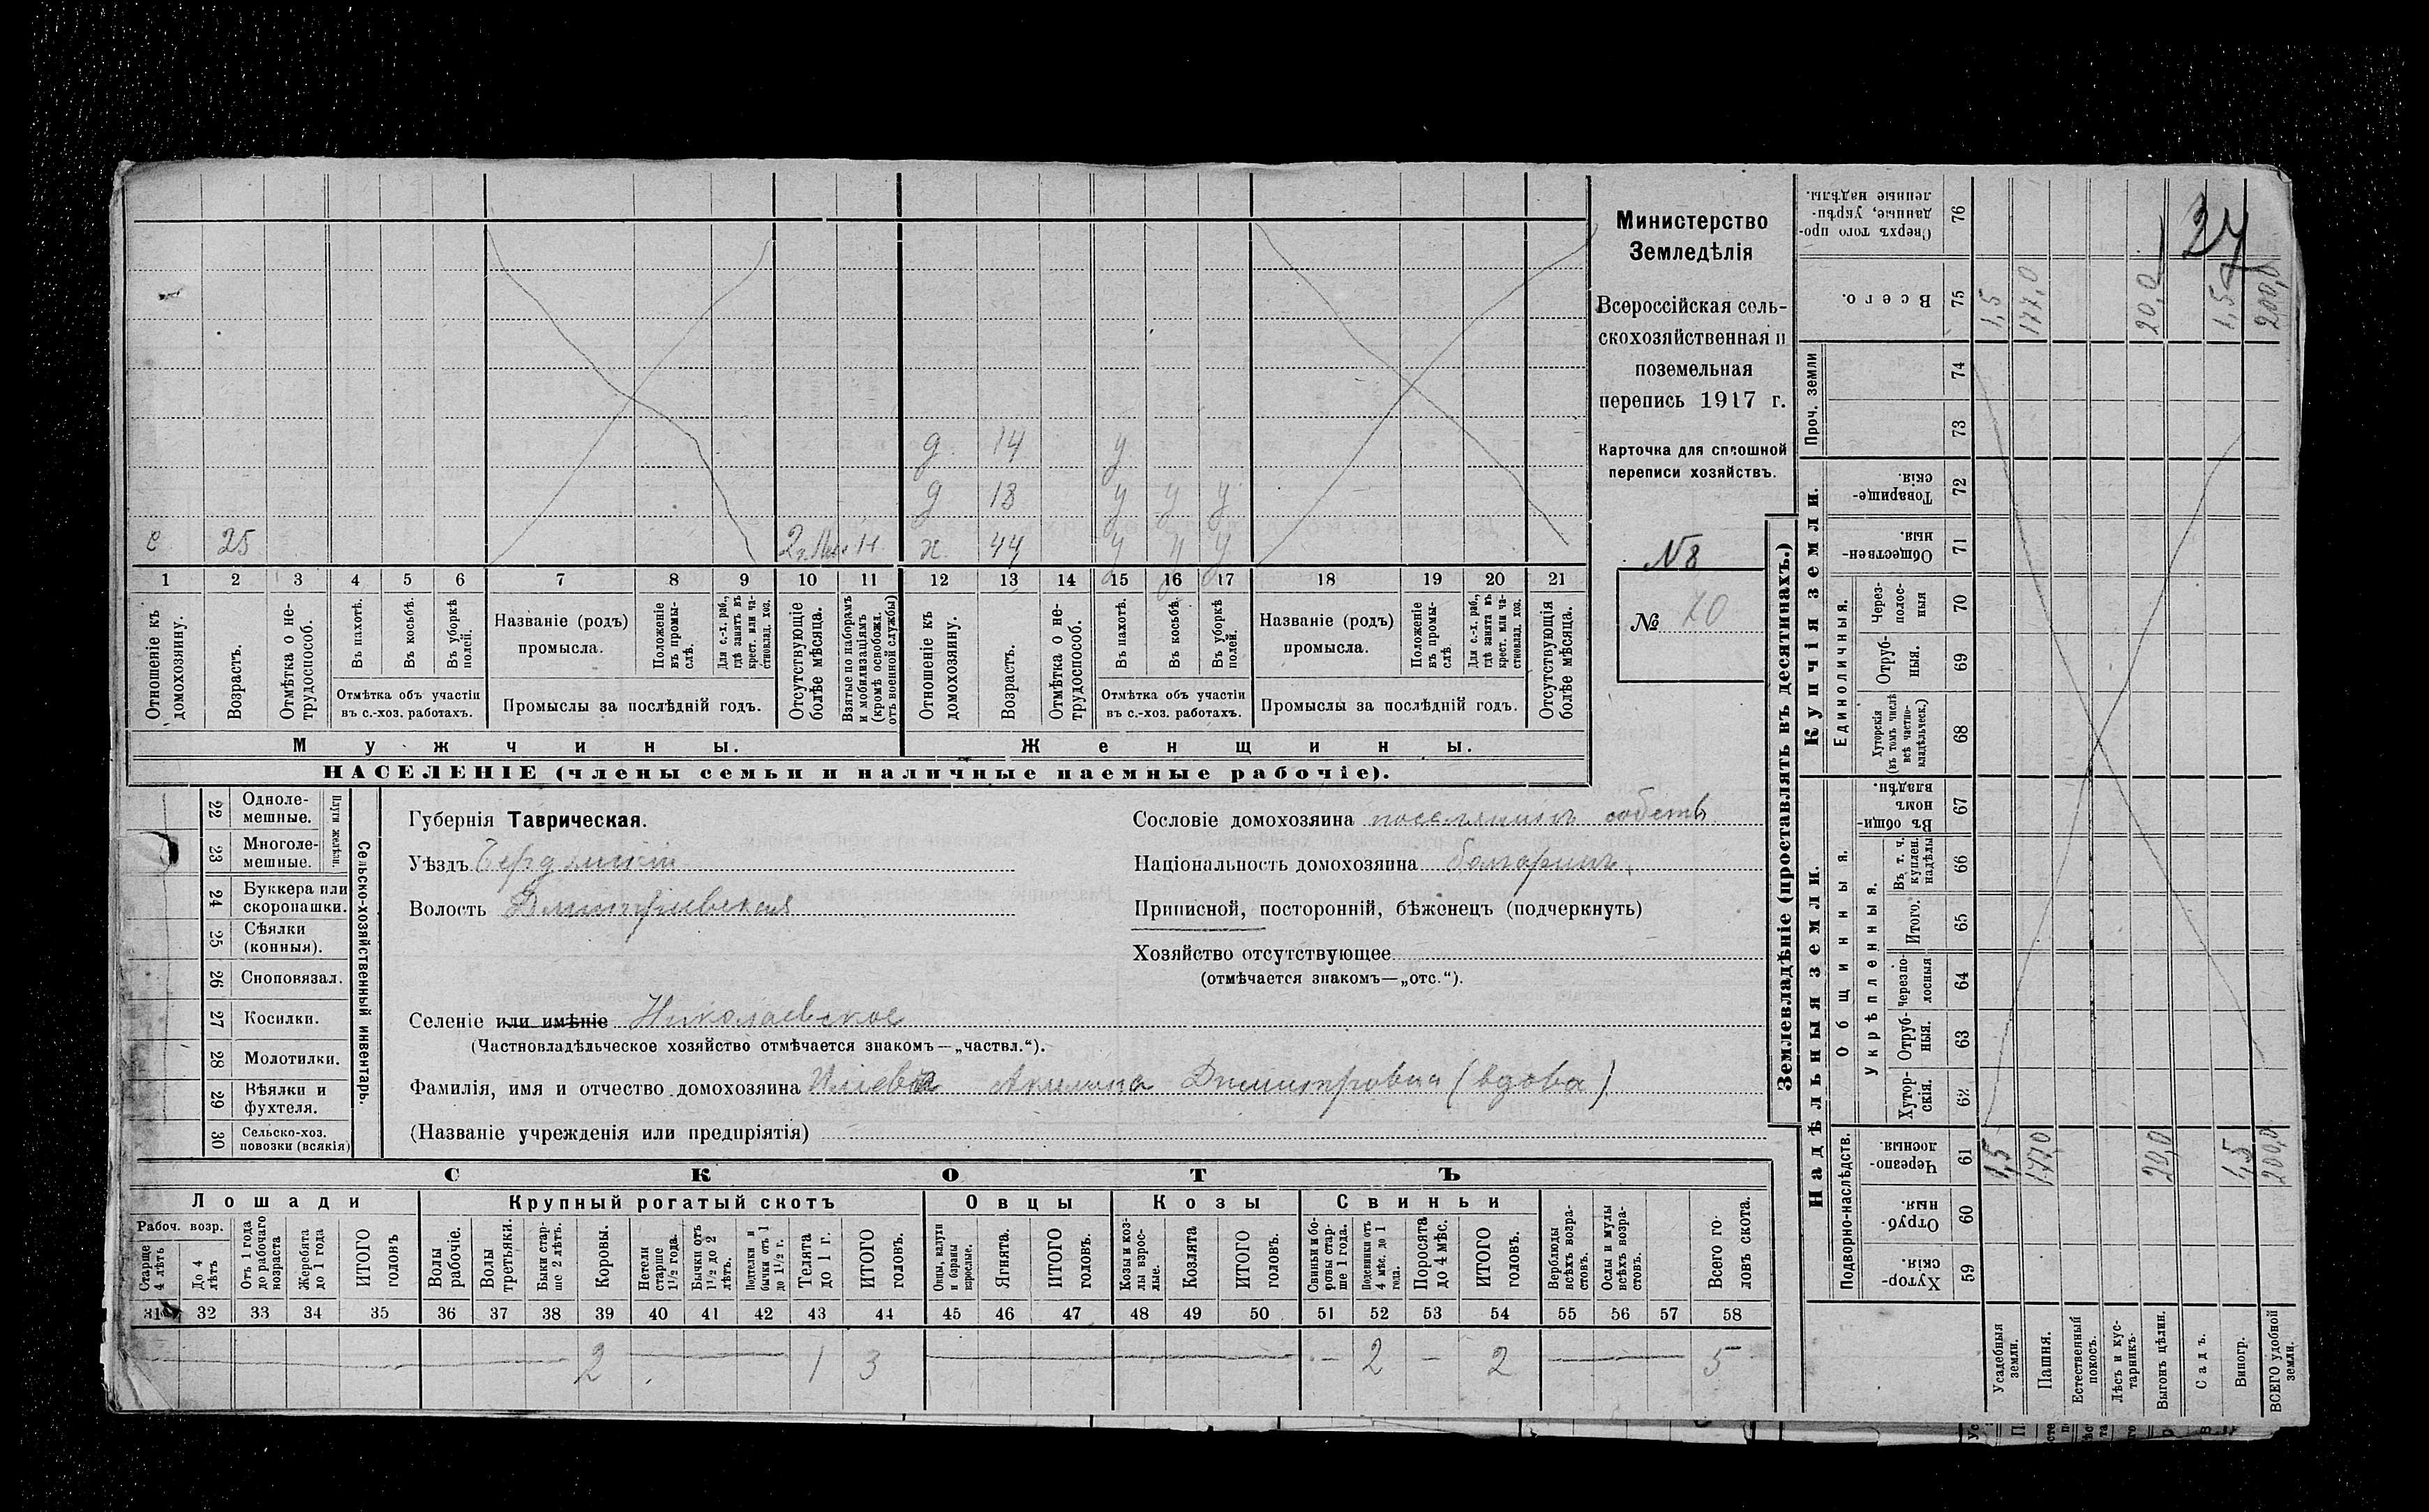 Министерство
Земледѣлія
Всероссійская сель-
скохозяйственная и
поземельная
перепись 1917 г.
Карточка для сплошной
переписи хозяйствъ.
№ 8
№ 70
27
д 14 у
д 18 у у у
с 25
ж 44 у у у
1 2 3 4 5 6 7 8 9 10 11 12 13 14 15 16 17 18 19 20 21
Отношеніе къ домохозяину.
Возрастъ.
Отмѣтка о не-трудоспособ.
Въ пахотѣ.
Въ косьбѣ.
Въ уборкѣ полей.
Отмѣтка объ участіи
въ с.-хоз. работахъ.
Названіе (родъ)
промысла.
Положеніе въ промы-слѣ.
Для с.-х. раб., гдѣ занятъ въ крест. или ча-стновлад. хоз.
Промыслы за послѣдній годъ.
Отсутствующіе болѣе мѣсяца.
Взятые по наборамъ и мобилизаціямъ (кромѣ освобожд. отъ военной службы)
Отношеніе къ домохозяину.
Возрастъ.
Отмѣтка о не-трудоспособ.
Въ пахотѣ.
Въ косьбѣ.
Въ уборкѣ полей.
Отмѣтка объ участіи
въ с.-хоз. работахъ.
Названіе (родъ)
промысла.
Положеніе въ промы-слѣ.
Для с.-х. раб., гдѣ занята въ крест. или ча-стновлад. хоз.
Промыслы за послѣдній годъ.
Отсутствующія болѣе мѣсяца.
Мужчины.
Женщины.
НАСЕЛЕНІЕ (члены семьи и наличные наемные рабочіе).
22 Одноле-мешные.
23 Многоле-мешные.
Плуги желѣзн.
24 Буккера или скоропашки.
25 Сѣялки (конныя).
26 Сноповязал.
27 Косилки.
28 Молотилки.
29 Вѣялки и фухтеля.
30 Сельско-хоз. повозки (всякія)
Сельско-хозяйственный инвентарь.
Губернія Таврическая.
Уѣздъ Бердянскій
Волость Димитріевская
Сословіе домохозяина поселянинъ собств
Національность домохозяина болгаринъ
Приписной, посторонній, бѣженецъ (подчеркнуть)
Хозяйство отсутствующее
(отмѣчается знакомъ—„отс.“).
Селеніе или имѣніе Николаевское
(Частновладѣльческое хозяйство отмѣчается знакомъ—„частвл.“).
Фамилія, имя и отчество домохозяина Илиева Акилина Димитровна (вдова)
(Названіе учрежденія или предпріятія)
СКОТЪ
Лошади
Крупный рогатый скотъ
Овцы
Козы
Свиньи
Рабоч. возр.
Старше 4 лѣтъ
До 4 лѣтъ
Отъ 1 года до рабочаго возраста
Жеребята до 1 года
ИТОГО головъ
Волы рабочіе.
Волы третьяки.
Быки стар-ше 2 лѣтъ.
Коровы.
Нетели старше 1½ года.
Бычки отъ 1½ до 2 лѣтъ.
Подтелки и бычки отъ 1 до 1½ г.
Телята до 1 г.
ИТОГО головъ.
Овцы, валухи и бараны взрослые.
Ягнята.
ИТОГО головъ.
Козы и коз-лы взрос-лые.
Козлята
ИТОГО головъ.
Свиньи и бо-ровы стар-ше 1 года.
Подсвинки отъ 4 мѣс. до 1 года.
Поросята до 4 мѣс.
ИТОГО головъ.
Верблюды всѣхъ возра-стовъ.
Ослы и мулы всѣхъ возра-стовъ.
Всего го-ловъ скота.
31 32 33 34 35 36 37 38 39 40 41 42 43 44 45 46 47 48 49 50 51 52 53 54 55 56 57 58
2 1 3 2 2 5
Землевладѣніе (проставлять въ десятинахъ.)
Надѣльныя земли.
Купчія земли.
Проч. земли
Подворно-наслѣдств.
Общинныя.
Укрѣпленныя.
Единоличныя.
Сверхъ того про-данные, укрѣп-ленные надѣлы. 76
Всего. 75
74
73
Товарище-скія 72
Обществен-ныя. 71
Через-полос-ныя 70
Отруб-ныя. 69
Хуторскія (въ томъ числѣ всѣ частно-владѣльческ.) 68
Въ общин-номъ владѣн. 67
Въ т. ч. куплен. надѣлы 66
Итого. 65
Черезпо-лосныя 64
Отруб-ныя. 63
Хутор-скія. 62
Черезпо-лосныя. 61
Отруб-ныя 60
Хутор-скія. 59
1,5 177,0 20,0 1,5 200,0
1,5 177,0 20,0 1,5 200,0
Усадебныя земли.
Пашня.
Естественный покосъ.
Лѣсъ и кус-тарникъ.
Выгонъ цѣлин.
Садъ.
Виногр.
ВСЕГО удобной земли.